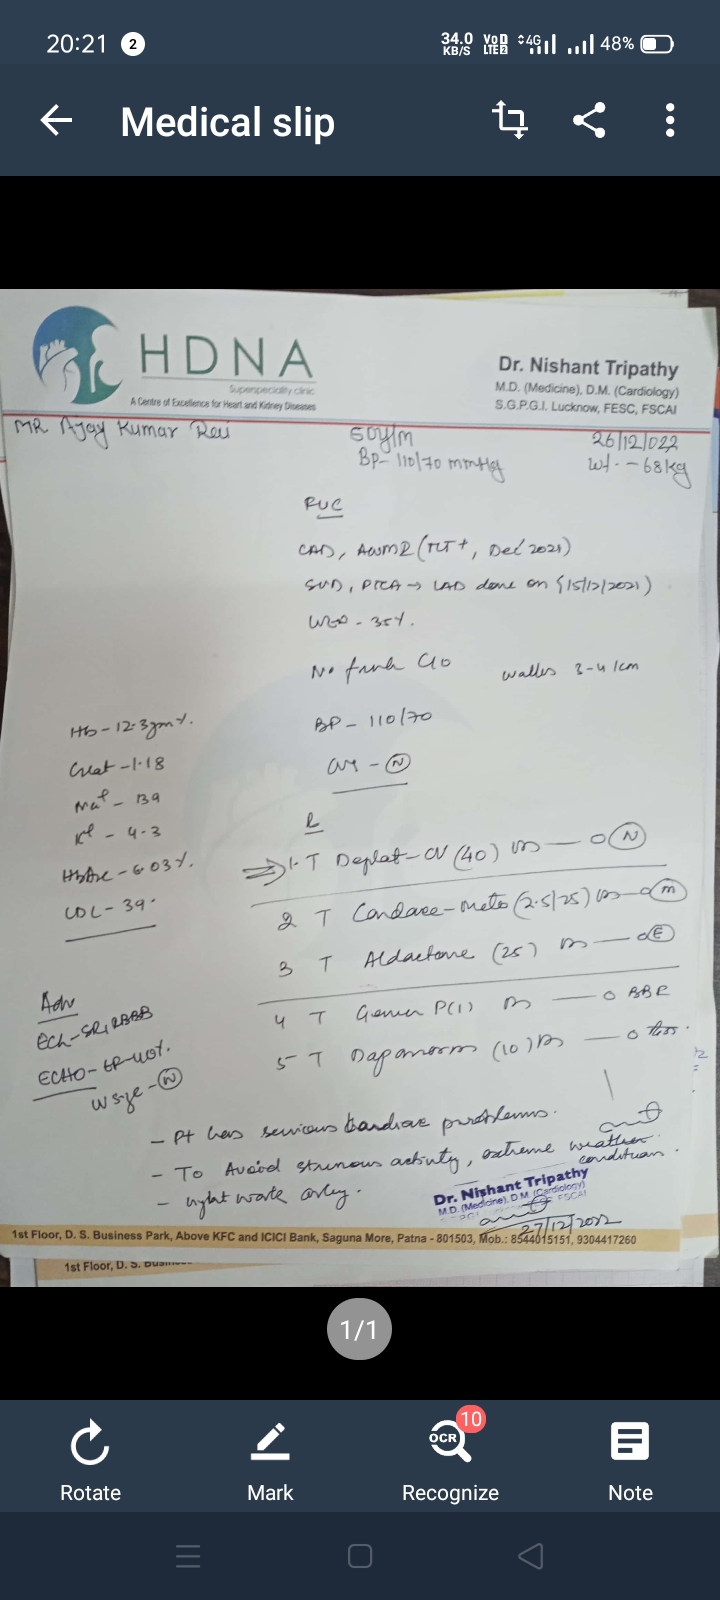 20:21 2 34.0 KB/S VoD LTE2 4G 48%
Medical slip
HDNA
Superspeciality clinic
A Centre of Excellence for Heart and Kidney Diseases
Dr. Nishant Tripathy
M.D. (Medicine), D.M. (Cardiology)
S.G.P.G.I. Lucknow, FESC, FSCAI
MR Ajay Kumar 60y/M 26/12/022
BP- 110/70 mmHg wt. - 68kg
FUC
CAD, AWMI (TLT+, Dec' 2021)
SVD, PTCA → LAD done on {15/12/2021)
- 35%.
No fresh C/o walks 3-4 km
Hb - 12.3gm%. BP - 110/70
Creat - 1.18 - N
Na+ - 139
K+ - 4.3
HbA1c - 6.03%.
LDL - 39.
1. T Deplat-CV (40) N
2 T -Meto (2.5/25) m
3 T Aldactone (25) E
4 T P(1) BBF
5- T (10)
Adv
ECG- SR, RBBB
ECHO- EF-40%.
N
- Pt has serious cardiac problems.
- To Avoid strenous activity, extreme weather
condition.
- light work only.
Dr. Nishant Tripathy
M.D. (Medicine), D.M. (Cardiology)
FSCAI
27/12/2022
1st Floor, D. S. Business Park, Above KFC and ICICI Bank, Saguna More, Patna - 801503, Mob.: 8544015151, 9304417260
1st Floor, D. S.
1/1
OCR 10
Rotate Mark Recognize Note